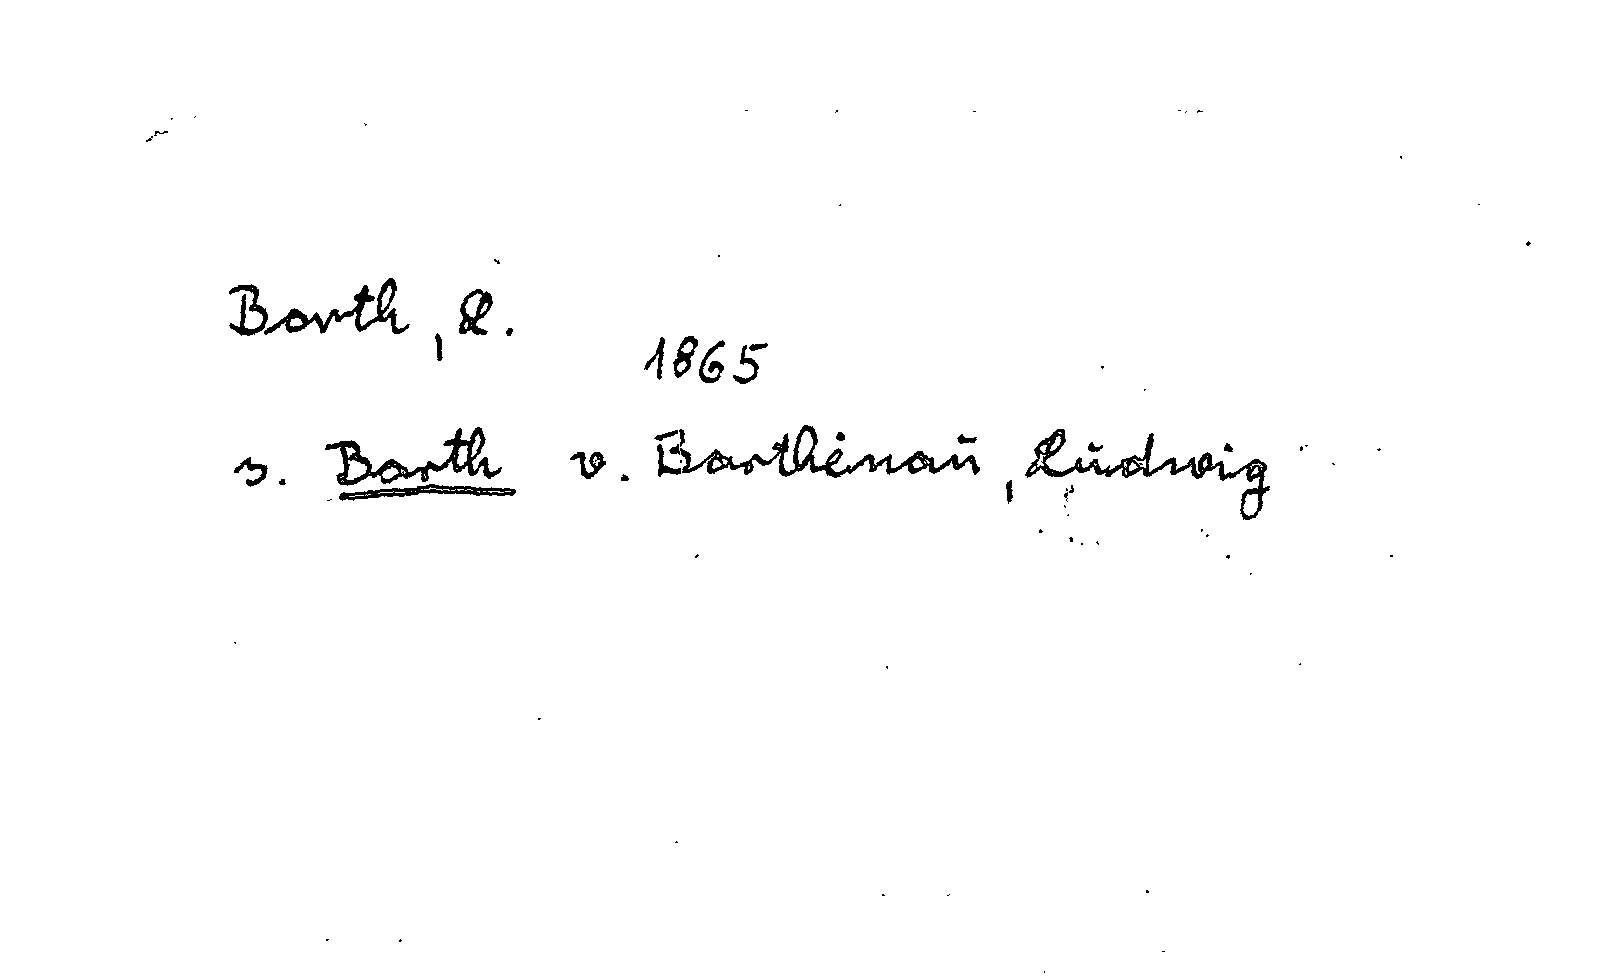 Barth, L.
1865
s. Barth v. Barthenau, Ludwig